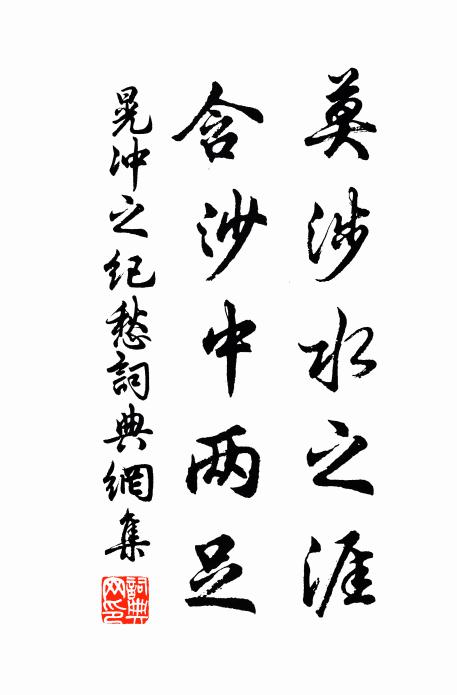 莫涉水之涯
含沙中两足
晁冲之纪愁詞典網集
詞典网印